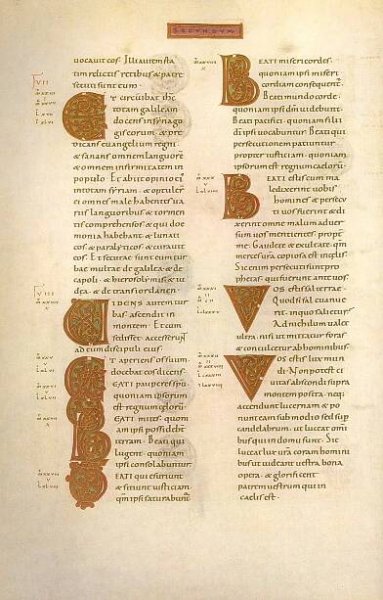 SECUNDUM
uocauit eos. Illi autem sta
tim relictis retibus & patre
secuti sunt eum.
VII
Et circuibat ihs
totam galileam
docens in synago
gis eorum. & pre
dicans euangelium regni
& sanans omnem languorē
& omnem infirmitatem in
populo. Et abiit opinio ei
in totam syriam. & optuler
ei omnes male habentes ua
riis languoribus & tormen
tis comprehensos & qui dae
monia habebant & lunati
cos & paralyticos & curauit
eos. Et secutae sunt eum tur
bae multae de galilea & de
capoli & hierosolimis & iu
dea & de transiordanen
VIII
Uidens autem tur
bas ascendit in
montem. Et cum
sedisset accesserunt
ad eum discipuli eius
Et aperiens os suum
docebat eos dicens
Beati pauperes spu
quoniam ipsorum
est regnum caelorū
Beati mites. quoni
am ipsi possidebt
terram. Beati qui
lugent. quoniam
ipsi consolabuntur
Beati qui esuriunt
& sitiunt iustitiam
qm̄ ipsi saturabunt
Beati misericordes.
quoniam ipsi miseri
cordiam consequent.
Beati mundo corde.
quoniam ipsi dm̄ uidebunt.
Beati pacifici. quoniam filii
di ipsi uocabuntur. Beati qui
persecutionem patiuntur
propter iustitiam. quoniam
ipsorum est regnum caelorū
Beati estis cum ma
ledixerint uobis
homines & persecu
ti uos fuerint & di
xerint omne malum aduer
sum uos mentientes. propt
me. Gaudete & exultate. qm̄
merces ura copiosa est in caelis.
Sic enim persecuti sunt pro
phetas. qui fuerunt ante uos.
Vos estis sal terrae.
Quod si sal euanue
rit. in quo salietur?
Ad nihilum ualet
ultra. nisi ut mittatur foras
& conculcetur ab hominibus.
Vos estis lux mun
di. Non potest ci
uitas abscondi supra
montem posita. neq;
accendunt lucernam & po
nunt eam sub modio sed sup
candelabrum. ut luceat omni
bus qui in domo sunt. Sic
luceat lux ura coram homini
bus ut uideant uestra bona
opera. & glorificent
patrem uestrum qui in
caelis est.